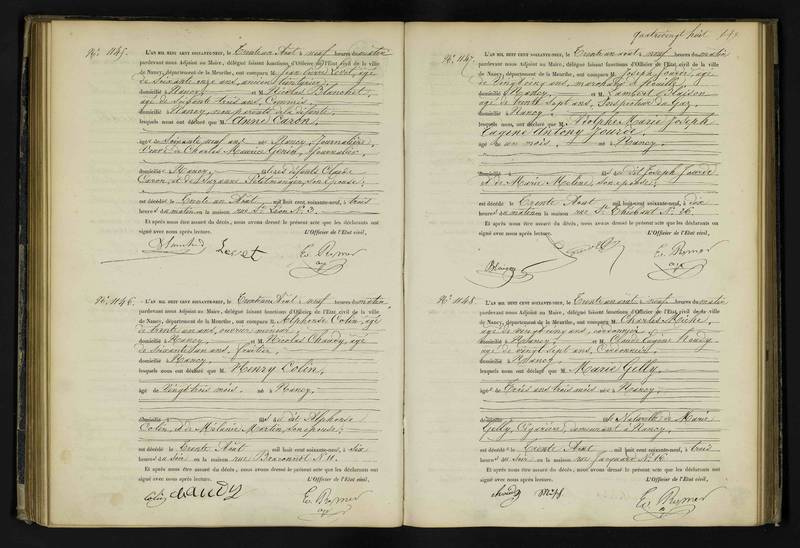 No. 1145. L'AN MIL HUIT CENT SOIXANTE-NEUF, le Trente un Août à neuf heures du matin
pardevant nous Adjoint au Maire, délégué faisant fonctions d'Officier de l'Etat civil de la ville
de Nancy, département de la Meurthe, ont comparu M. Levet, âgé
de Soixante onze ans, ancien
domicilié à Nancy, et M. Nicolas Blanchet,
âgé de Soixante trois ans, Commis,
domicilié à Nancy, non parents de la défunte,
lesquels nous ont déclaré que M. Anne Caron,
âgée de Soixante neuf ans née à Nancy, Journalière,
Veuve de Charles Maurice Génin, Journalier,
domiciliée à Nancy, fille des défunts Claude
Caron, et de Suzanne Petitmangin, son épouse,
est décédée le Trente un Août mil huit cent soixante-neuf, à trois
heures du matin en la maison rue St Léon No. 3.
Et après nous être assuré du décès, nous avons dressé le présent acte que les déclarants ont
signé avec nous après lecture. L'Officier de l'Etat civil,
Blanchet Levet
No. 1146. L'AN MIL HUIT CENT SOIXANTE-NEUF, le Trente un Août à neuf heures du matin
pardevant nous Adjoint au Maire, délégué faisant fonctions d'Officier de l'Etat civil de la ville
de Nancy, département de la Meurthe, ont comparu M. Alphonse Colin, âgé
de trente un ans, ouvrier
domicilié à Nancy, et M. Nicolas Chaudy, âgé
de Soixante un ans,
domicilié à Nancy,
lesquels nous ont déclaré que M. Henry Colin,
âgé de Vingt trois mois, né à Nancy,
domicilié à fils du dit Alphonse
Colin, et de Mélanie Martin, son épouse,
est décédé le Trente Août mil huit cent soixante-neuf, à six
heures du soir en la maison rue Braconnot No. 11.
Et après nous être assuré du décès, nous avons dressé le présent acte que les déclarants ont
signé avec nous après lecture. L'Officier de l'Etat civil,
Colin chaudy
quatrevingt huit
No. 1147. L'AN MIL HUIT CENT SOIXANTE-NEUF, le Trente un Août à neuf heures du matin
pardevant nous Adjoint au Maire, délégué faisant fonctions d'Officier de l'Etat civil de la ville
de Nancy, département de la Meurthe, ont comparu M. Joseph Jourdé, âgé
de ans, marchand de
domicilié à Nancy, et M. Lambert Maison
âgé de trente sept ans, Inspecteur du Gaz,
domicilié à Nancy,
lesquels nous ont déclaré que M. Adolphe Marie Joseph
Eugène Antony Jourdé,
âgé de un mois, né à Nancy,
domicilié à fils du dit Joseph Jourdé
et de Marie son épouse,
est décédé le Trente Août mil huit cent soixante-neuf, à dix
heures du matin en la maison rue St Thiébaut No. 26.
Et après nous être assuré du décès, nous avons dressé le présent acte que les déclarants ont
signé avec nous après lecture. L'Officier de l'Etat civil,
No. 1148. L'AN MIL HUIT CENT SOIXANTE-NEUF, le Trente un Août à neuf heures du matin
pardevant nous Adjoint au Maire, délégué faisant fonctions d'Officier de l'Etat civil de la ville
de Nancy, département de la Meurthe, ont comparu M. Charles
âgé de vingt cinq ans, cordonnier,
domicilié à Nancy, et M. Claude Eugène
âgé de vingt sept ans, Cordonnier,
domicilié à Nancy,
lesquels nous ont déclaré que M. Marie Gelly,
âgée de Trois ans trois mois née à Nancy,
domiciliée à fille Naturelle de Marie
Gelly, Cigarière, demeurant à Nancy,
est décédée le Trente Août mil huit cent soixante-neuf, à trois
heures du soir en la maison rue Jacquard No. 16.
Et après nous être assuré du décès, nous avons dressé le présent acte que les déclarants ont
signé avec nous après lecture. L'Officier de l'Etat civil,